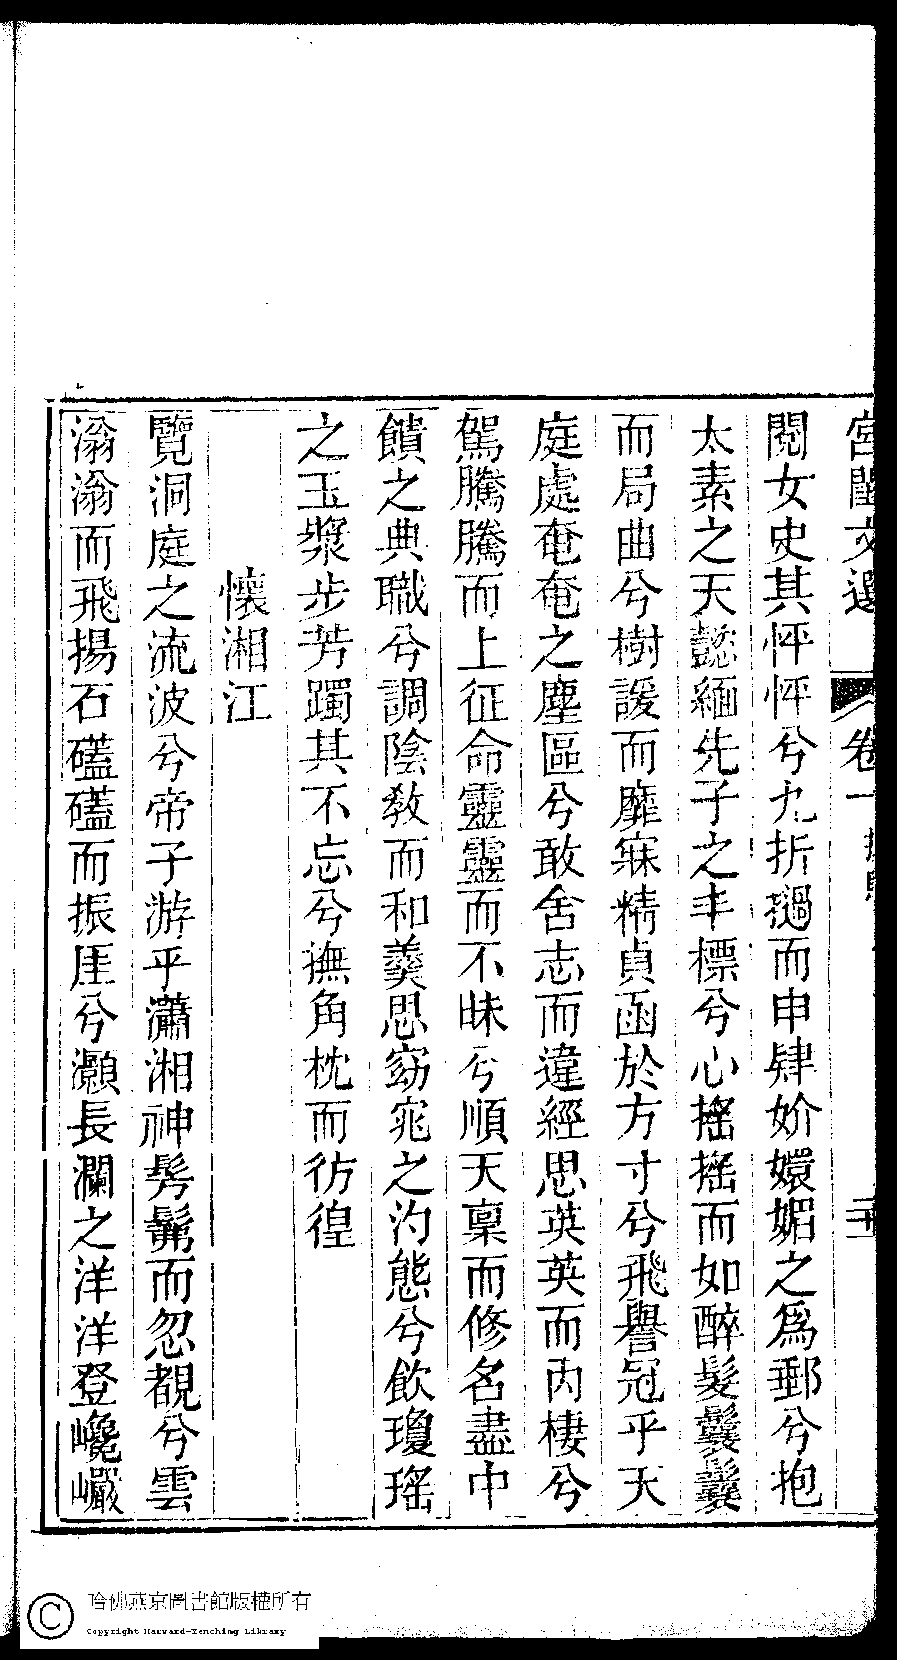 宮閨文選 卷一
閱女史其怦怦兮九折撾而申肆妎嬛媚之爲郵兮抱
太素之天懿緬先子之丰標兮心搖搖而如醉髮鬟鬟
而局曲兮樹諼而靡寐精貞函於方寸兮飛譽冠乎天
庭處奄奄之塵區兮敢舍志而違經思英英而內棲兮
駕騰騰而上征命靈靈而不昧兮順天稟而修名盡中
饋之典職兮調陰敎而和羹思窈窕之汋態兮飲瓊瑤
之玉漿步芳躅其不忘兮撫角枕而彷徨
懷湘江
覽洞庭之流波兮帝子游乎瀟湘神髣髴而忽覩兮雲
滃滃而飛揚石礚礚而振厓兮灝長瀾之洋洋登巉巖
哈佛燕京圖書館版權所有
Copyright Harvard-Yenching Library